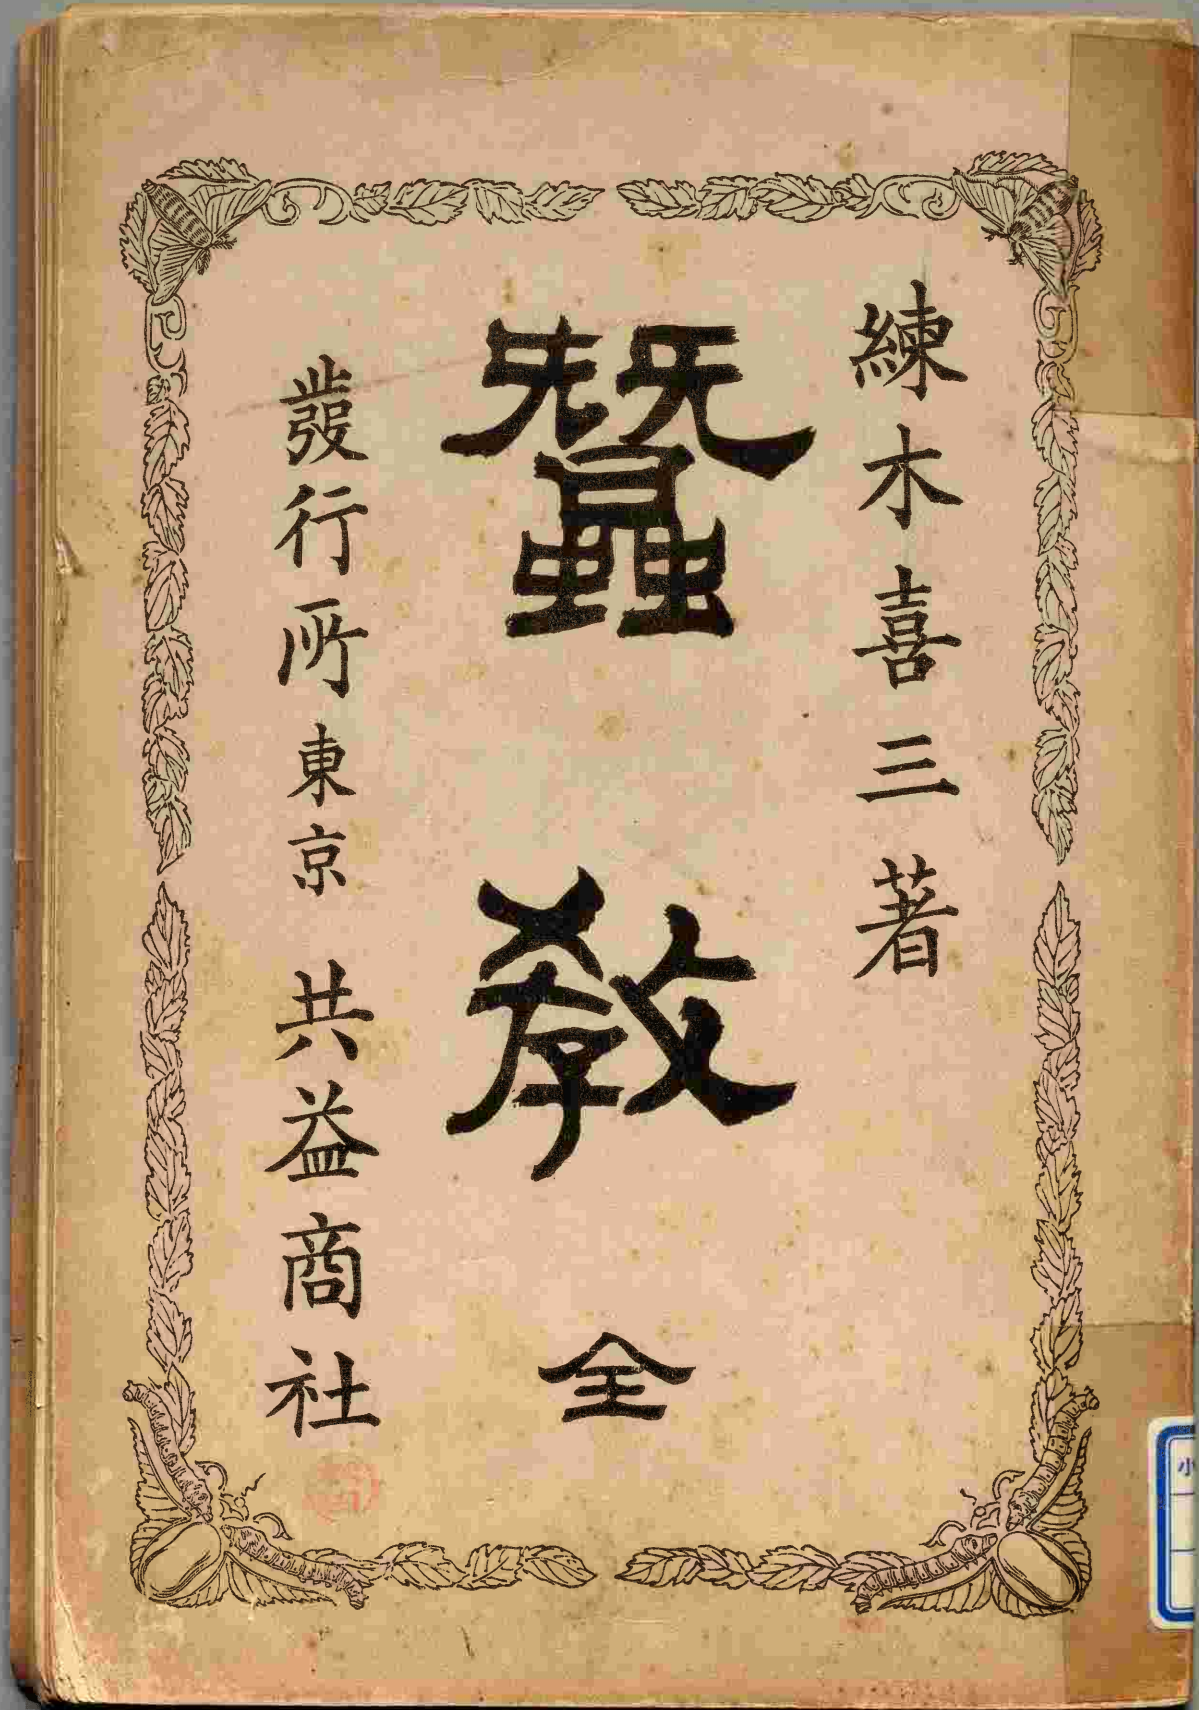 練木喜三著
蠶教 全
發行所 東京 共益商社
小